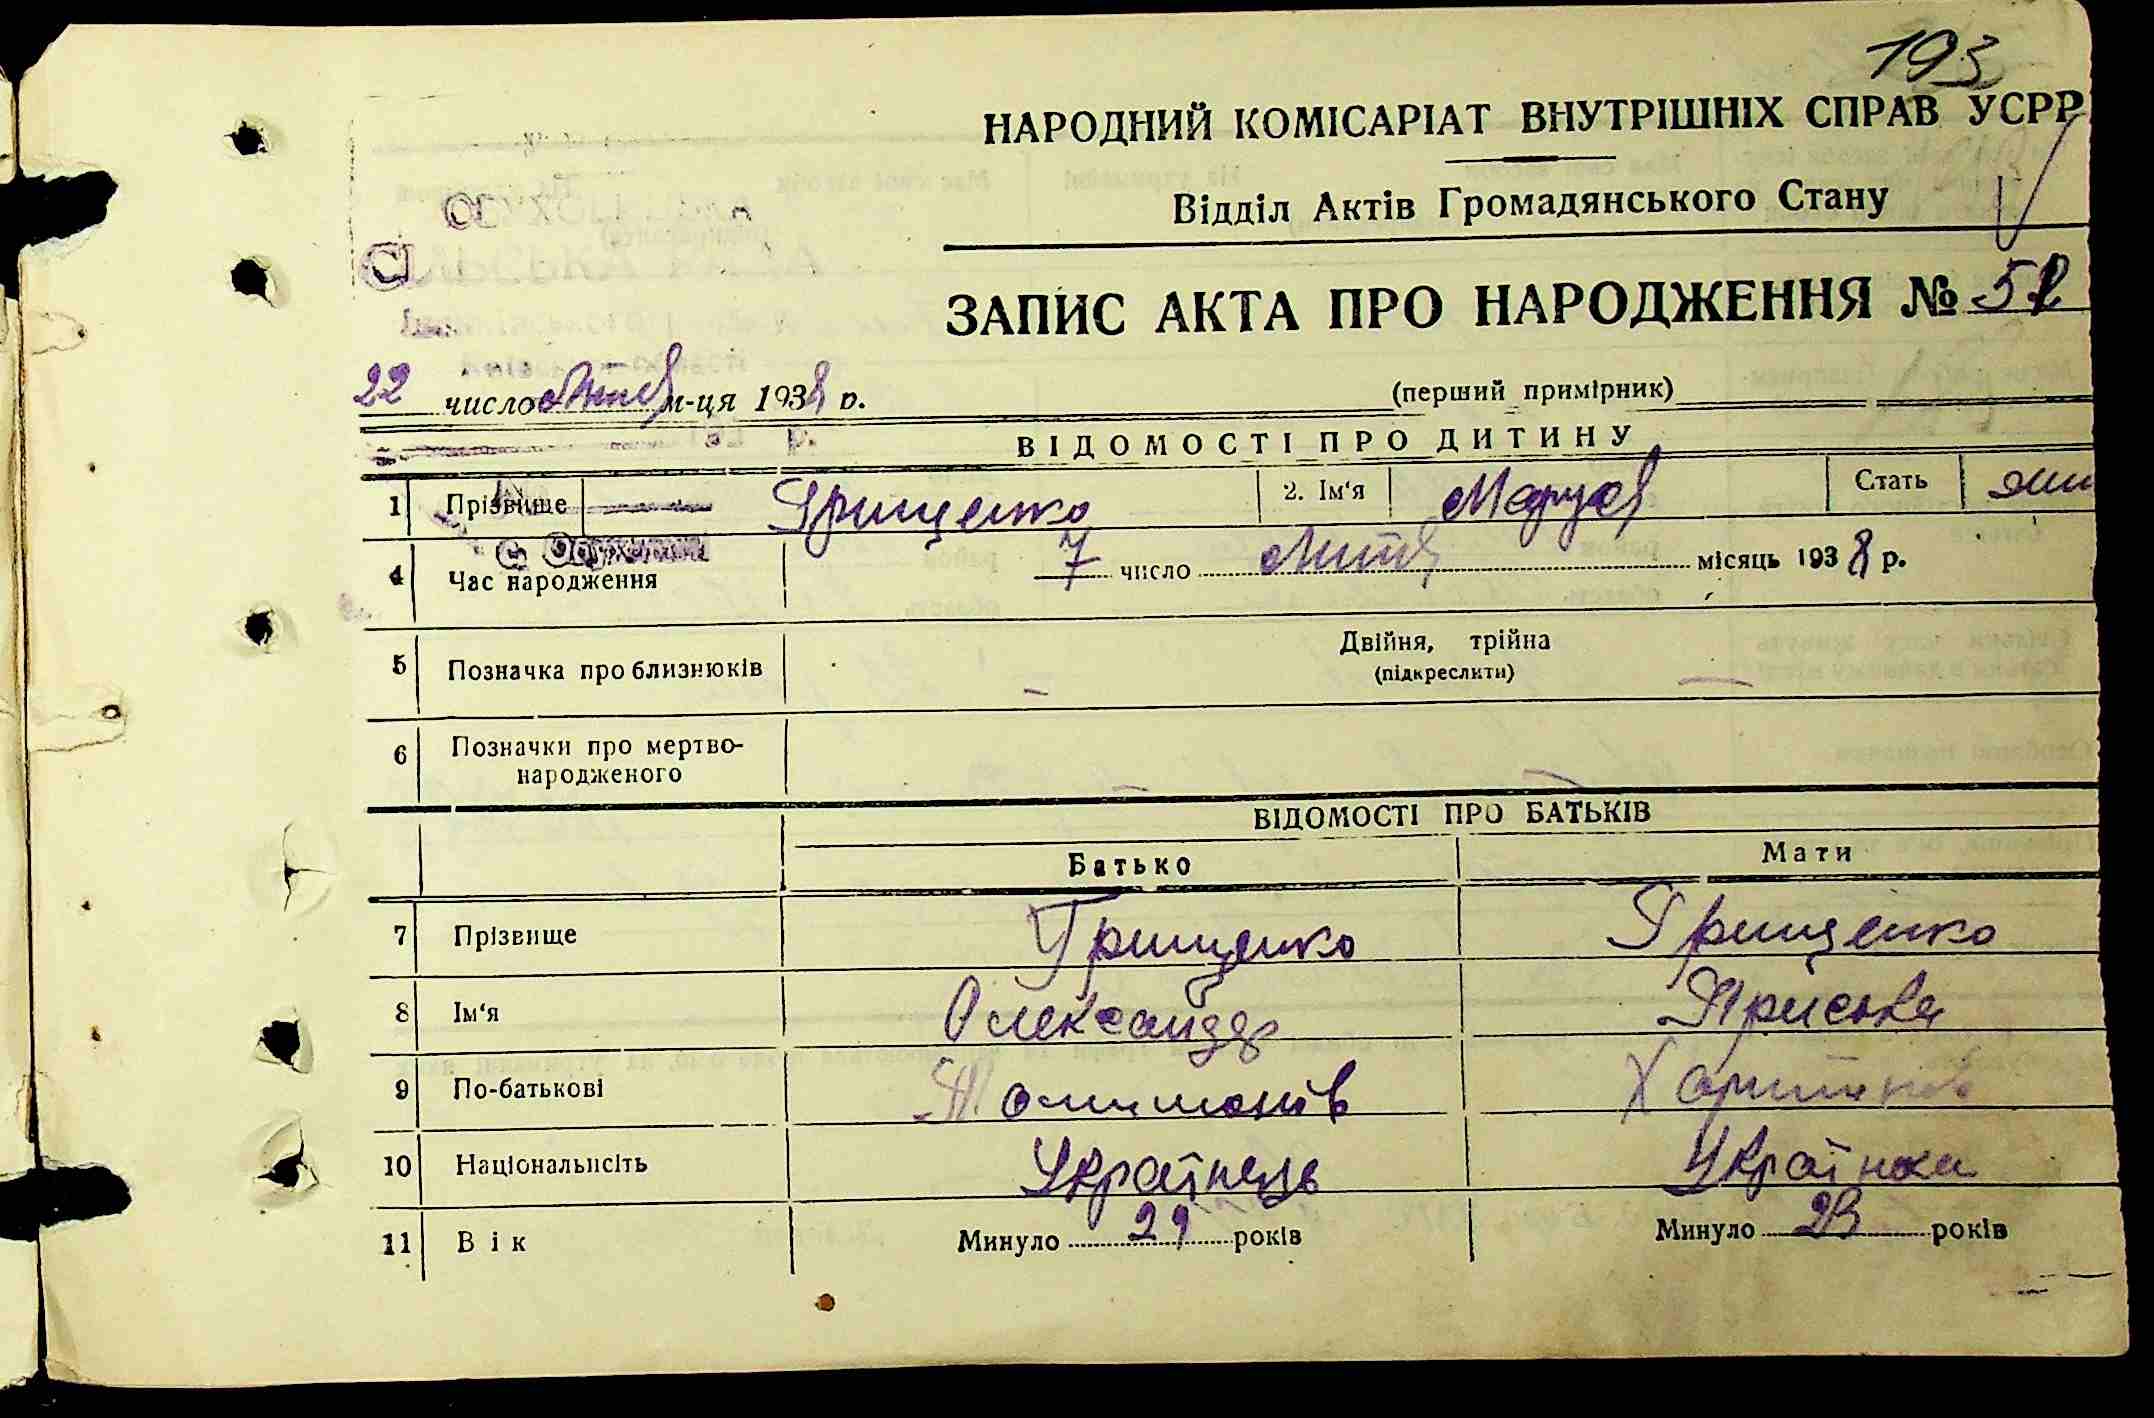 193
НАРОДНИЙ КОМІСАРІАТ ВНУТРІШНІХ СПРАВ УСРР
Відділ Актів Громадянського Стану
ЗАПИС АКТА ПРО НАРОДЖЕННЯ №
22 число м-ця 1938 р.
(перший примірник)
ВІДОМОСТІ ПРО ДИТИНУ
1 Прізвище Грищенко 2. Ім'я Маруся Стать
4 Час народження 7 число місяць 1938 р.
5 Позначка про близнюків Двійня, трійна
(підкреслити)
6 Позначки про мертво-
народженого
ВІДОМОСТІ ПРО БАТЬКІВ
Батько Мати
7 Прізвище Грищенко Грищенко
8 Ім'я Олександр Пріська
9 По-батькові
10 Національність Українець Українка
11 Вік Минуло 29 років Минуло 23 років